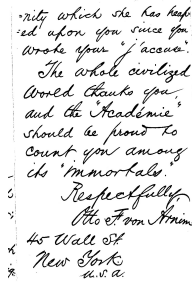 nity which she has heap-
ed upon you since you
wrote your "j'accuse".
The whole civilized
World thanks you
and the "Académie"
should be proud to
count you among
its "immortals."
Respectfully
Otto F von Arnim
45 Wall St
New York
U.S.A.